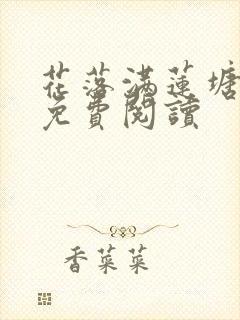 花落满莲塘
免費閱讀
香菜菜